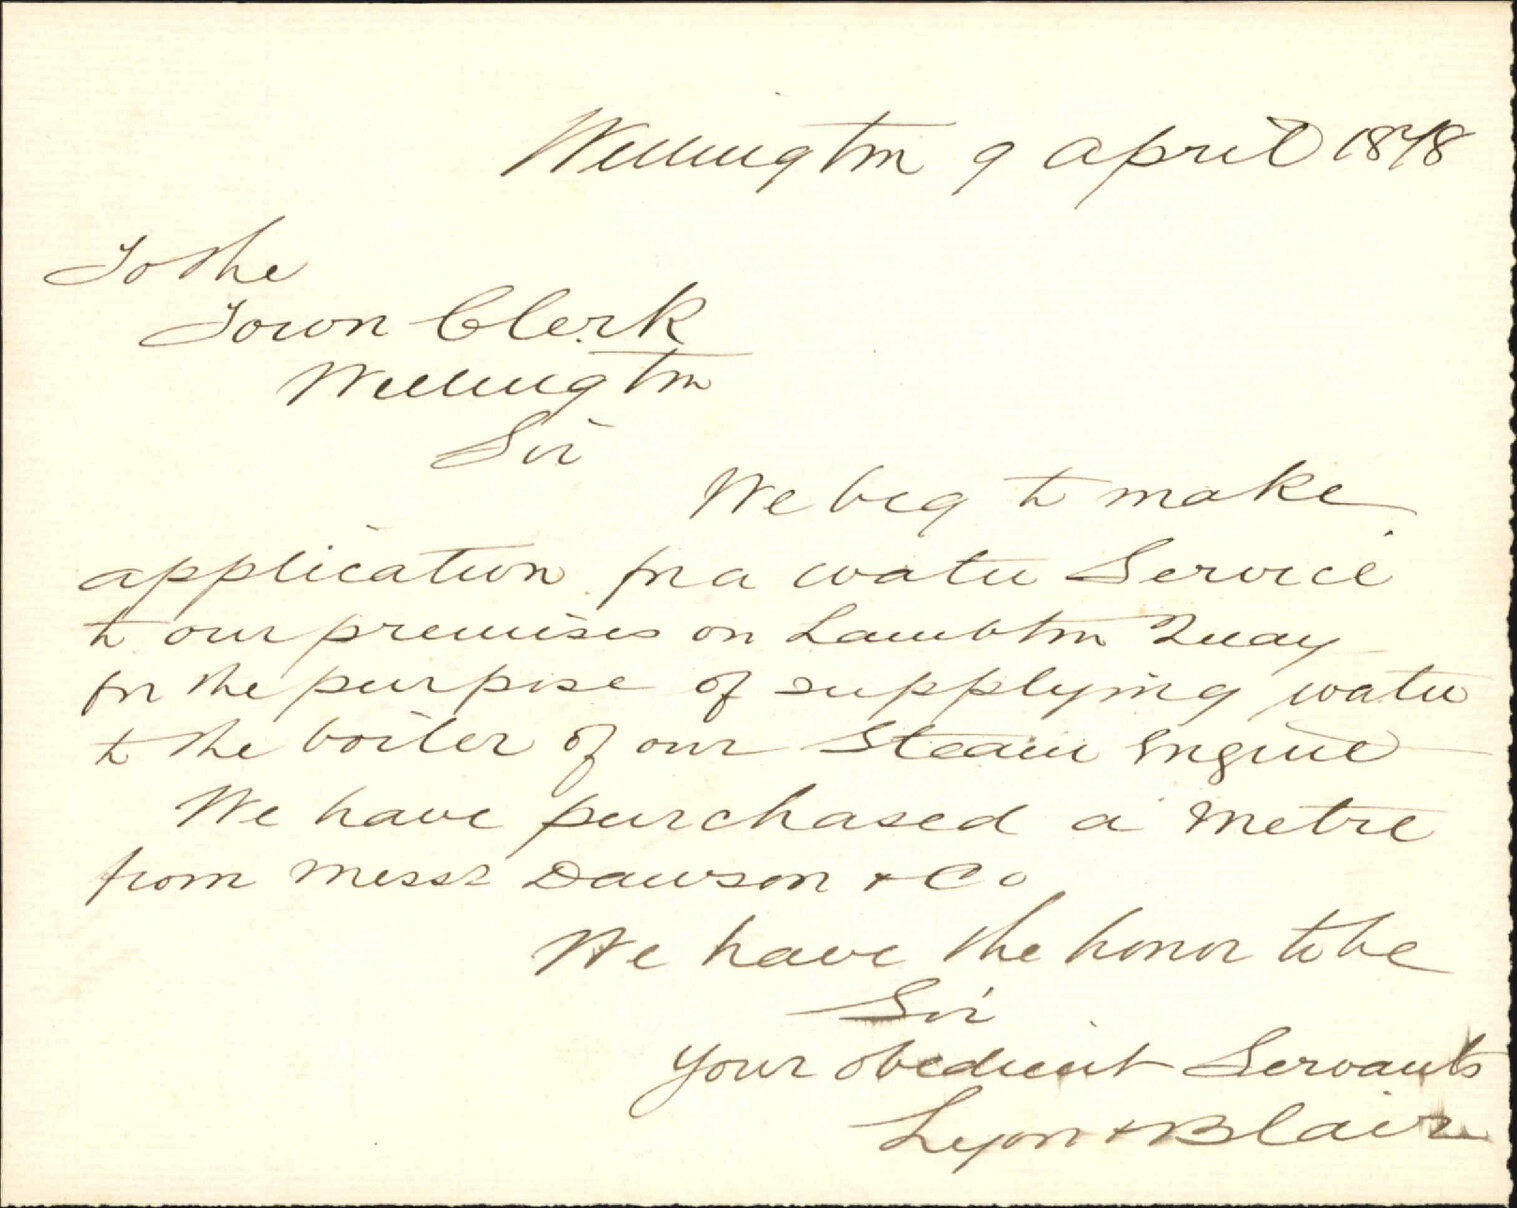 Wellington 9 April 1878
To the
Town Clerk
Wellington
Sir
We beg to make
application for a water Service
to our premises on Lambton Quay
for the purpose of supplying water
to the boiler of our Steam Engine
We have purchased a Metre
from Messrs Dawson & Co
We have the honor to be
Sir
Your obedient Servants
Lyon & Blair